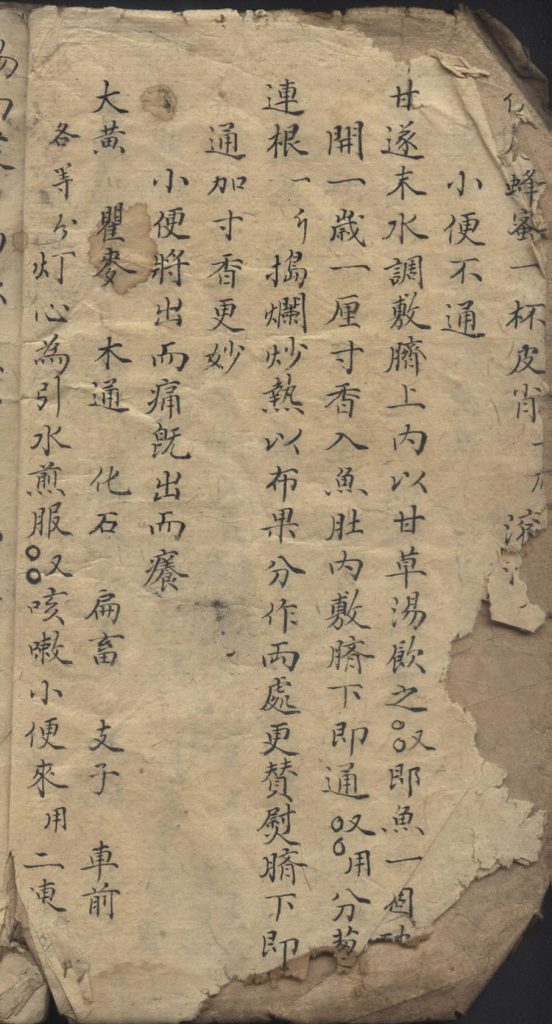 蜂蜜一杯皮肖一 滚
小便不通
甘遂末水調敷臍上内以甘草湯飲之又即魚一個
開一歲一厘寸香入魚肚内敷臍下即通又用分葱
連根一斤搗爛炒熱以布果分作兩處更替熨臍下即
通加寸香更妙
小便將出而痛既出而癢
大黄 瞿麥 木通 化石 扁畜 支子 車前
各等分灯心為引水煎服又咳嗽小便來用二陳